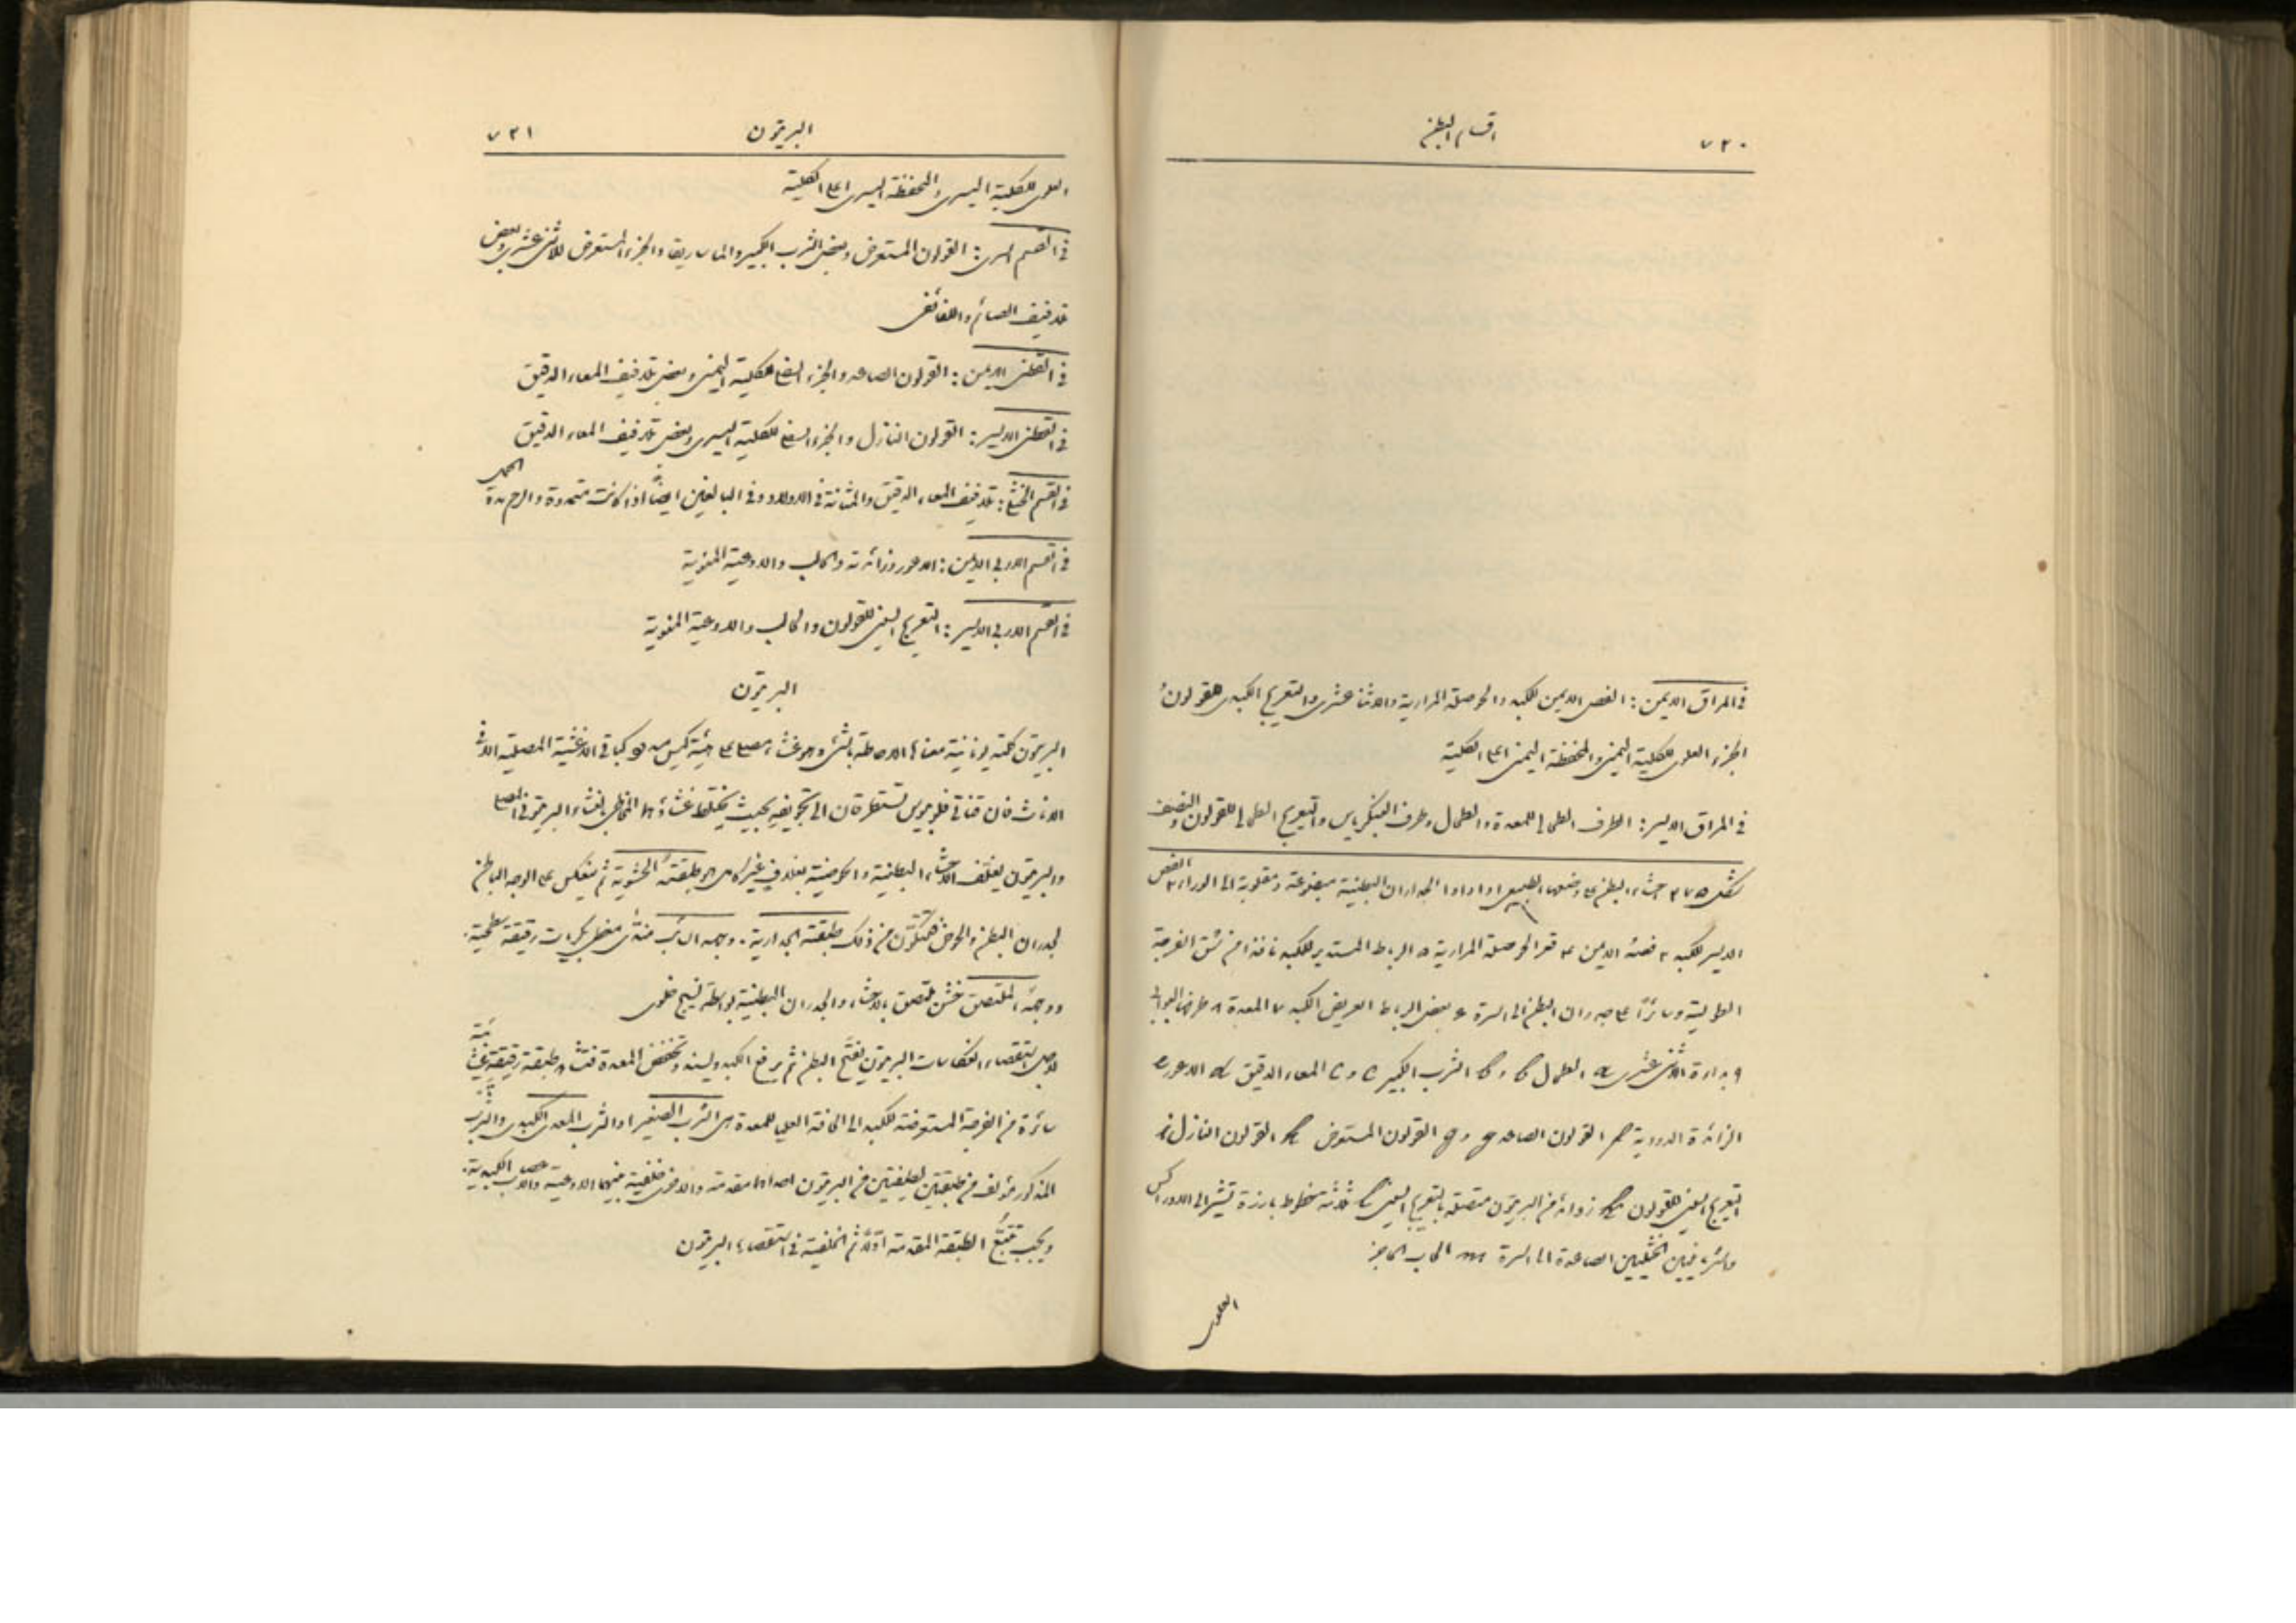 ٧٢٠ اقسام البطن
في المراق الايمن : الفص الايمن للكبد والحوصلة المرارية والاثنا عشري والتعريج الكبدي للقولون و
الجزء العلوي للكلية اليمنى والمحفظة اليمنى اعلى الكلية
في المراق الايسر : الطرف الطحالي للمعدة والطحال وطرف البنكرياس والتعريج الطحالي للقولون والنصف
شكل ٢٧٥ احشاء البطن في وضعها الطبيعي الجدران البطنية مقطوعة ومقلوبة الى الوراء الفص
الايسر للكبد ٢ فصه الايمن ٣ قعر الحوصلة المرارية ٥ الرباط المستدير للكبد نافذا من شق الفرجة
الطولية وسائرًا على جدران البطن الى السرة ٦ بعض الرباط العريض للكبد ٧ المعدة ٨ طرفها البوابي
٩ بداءة الاثني عشري a الطحال الثرب الكبير c و c المعاء الدقيق d الاعور e
الزائدة الدودية القولون الصاعد g و g القولون المستعرض القولون النازل
التعريج السيني للقولون زوائد من البريتون متصلة بالتعريج السيني ثلاثة خطوط بارزة تشير الى الاوراكس
والشريانين الخثليين الصاعدة الى السرة m الحجاب الحاجز
العلوي
البريتون ٧٢١
العلوي للكلية اليسرى والمحفظة اليسرى اعلى الكلية
في القسم السري : القولون المستعرض وبعض الثرب الكبير والماساريقا والجزء المستعرض للاثني عشري وبعض
تلافيف الصائم واللفائفي
في القطني الايمن : القولون الصاعد والجزء السفلي للكلية اليمنى وبعض تلافيف المعاء الدقيق
في القطني الايسر : القولون النازل والجزء السفلي للكلية اليسرى وبعض تلافيف المعاء الدقيق
في القسم الخثلي : تلافيف المعاء الدقيق والمثانة في الاولاد وفي البالغين ايضًا اذا كانت متمددة والرحم مدة الحمل
في القسم الاربي الايمن : الاعور وزائدته والحالب والاوعية المنوية
في القسم الاربي الايسر : التعريج السيني للقولون والحالب والاوعية المنوية
البريتون
البريتون كلمة يونانية معناها الاحاطة بالشيء وهو غشاء مصلي على هيئة كيس مسدود كباقي الاغشية المصلية الا في
الاناث فان قناتي فلوبيوس تستطرقان الى تجويفه بحيث يختلط غشاؤها المخاطي بالغشاء البريتوني المصلي
والبريتون يغلف الاحشاء البطنية والحوضية بغلاف غير كامل هو طبقته الحشوية ثم ينعكس على الوجه الباطن
لجدران البطن والحوض فتتكون من ذلك طبقته الجدارية . ووجهه السائب منشى مغطى بكريات رقيقة سطحية .
ووجهه الملتصق خشن ملتصق بالاحشاء والجدران البطنية بواسطة نسيج خلوي
لاجل استقصاء انعكاسات البريتون يفتح البطن ثم يرفع الكبد ويسند وتخفض المعدة فتشاهد طبقة رقيقة غشائية
سائرة من الفرجة المستعرضة للكبد الى الحافة العليا للمعدة هي الثرب الصغير او الثرب المعدي الكبدي والثرب
المذكور مؤلف من طبقتين لطيفتين من البريتون احداهما مقدمة والاخرى خلفية بينهما الاوعية والاعصاب الكبدية .
ويجب تتبع الطبقة المقدمة اولا ثم الخلفية في استقصاء البريتون